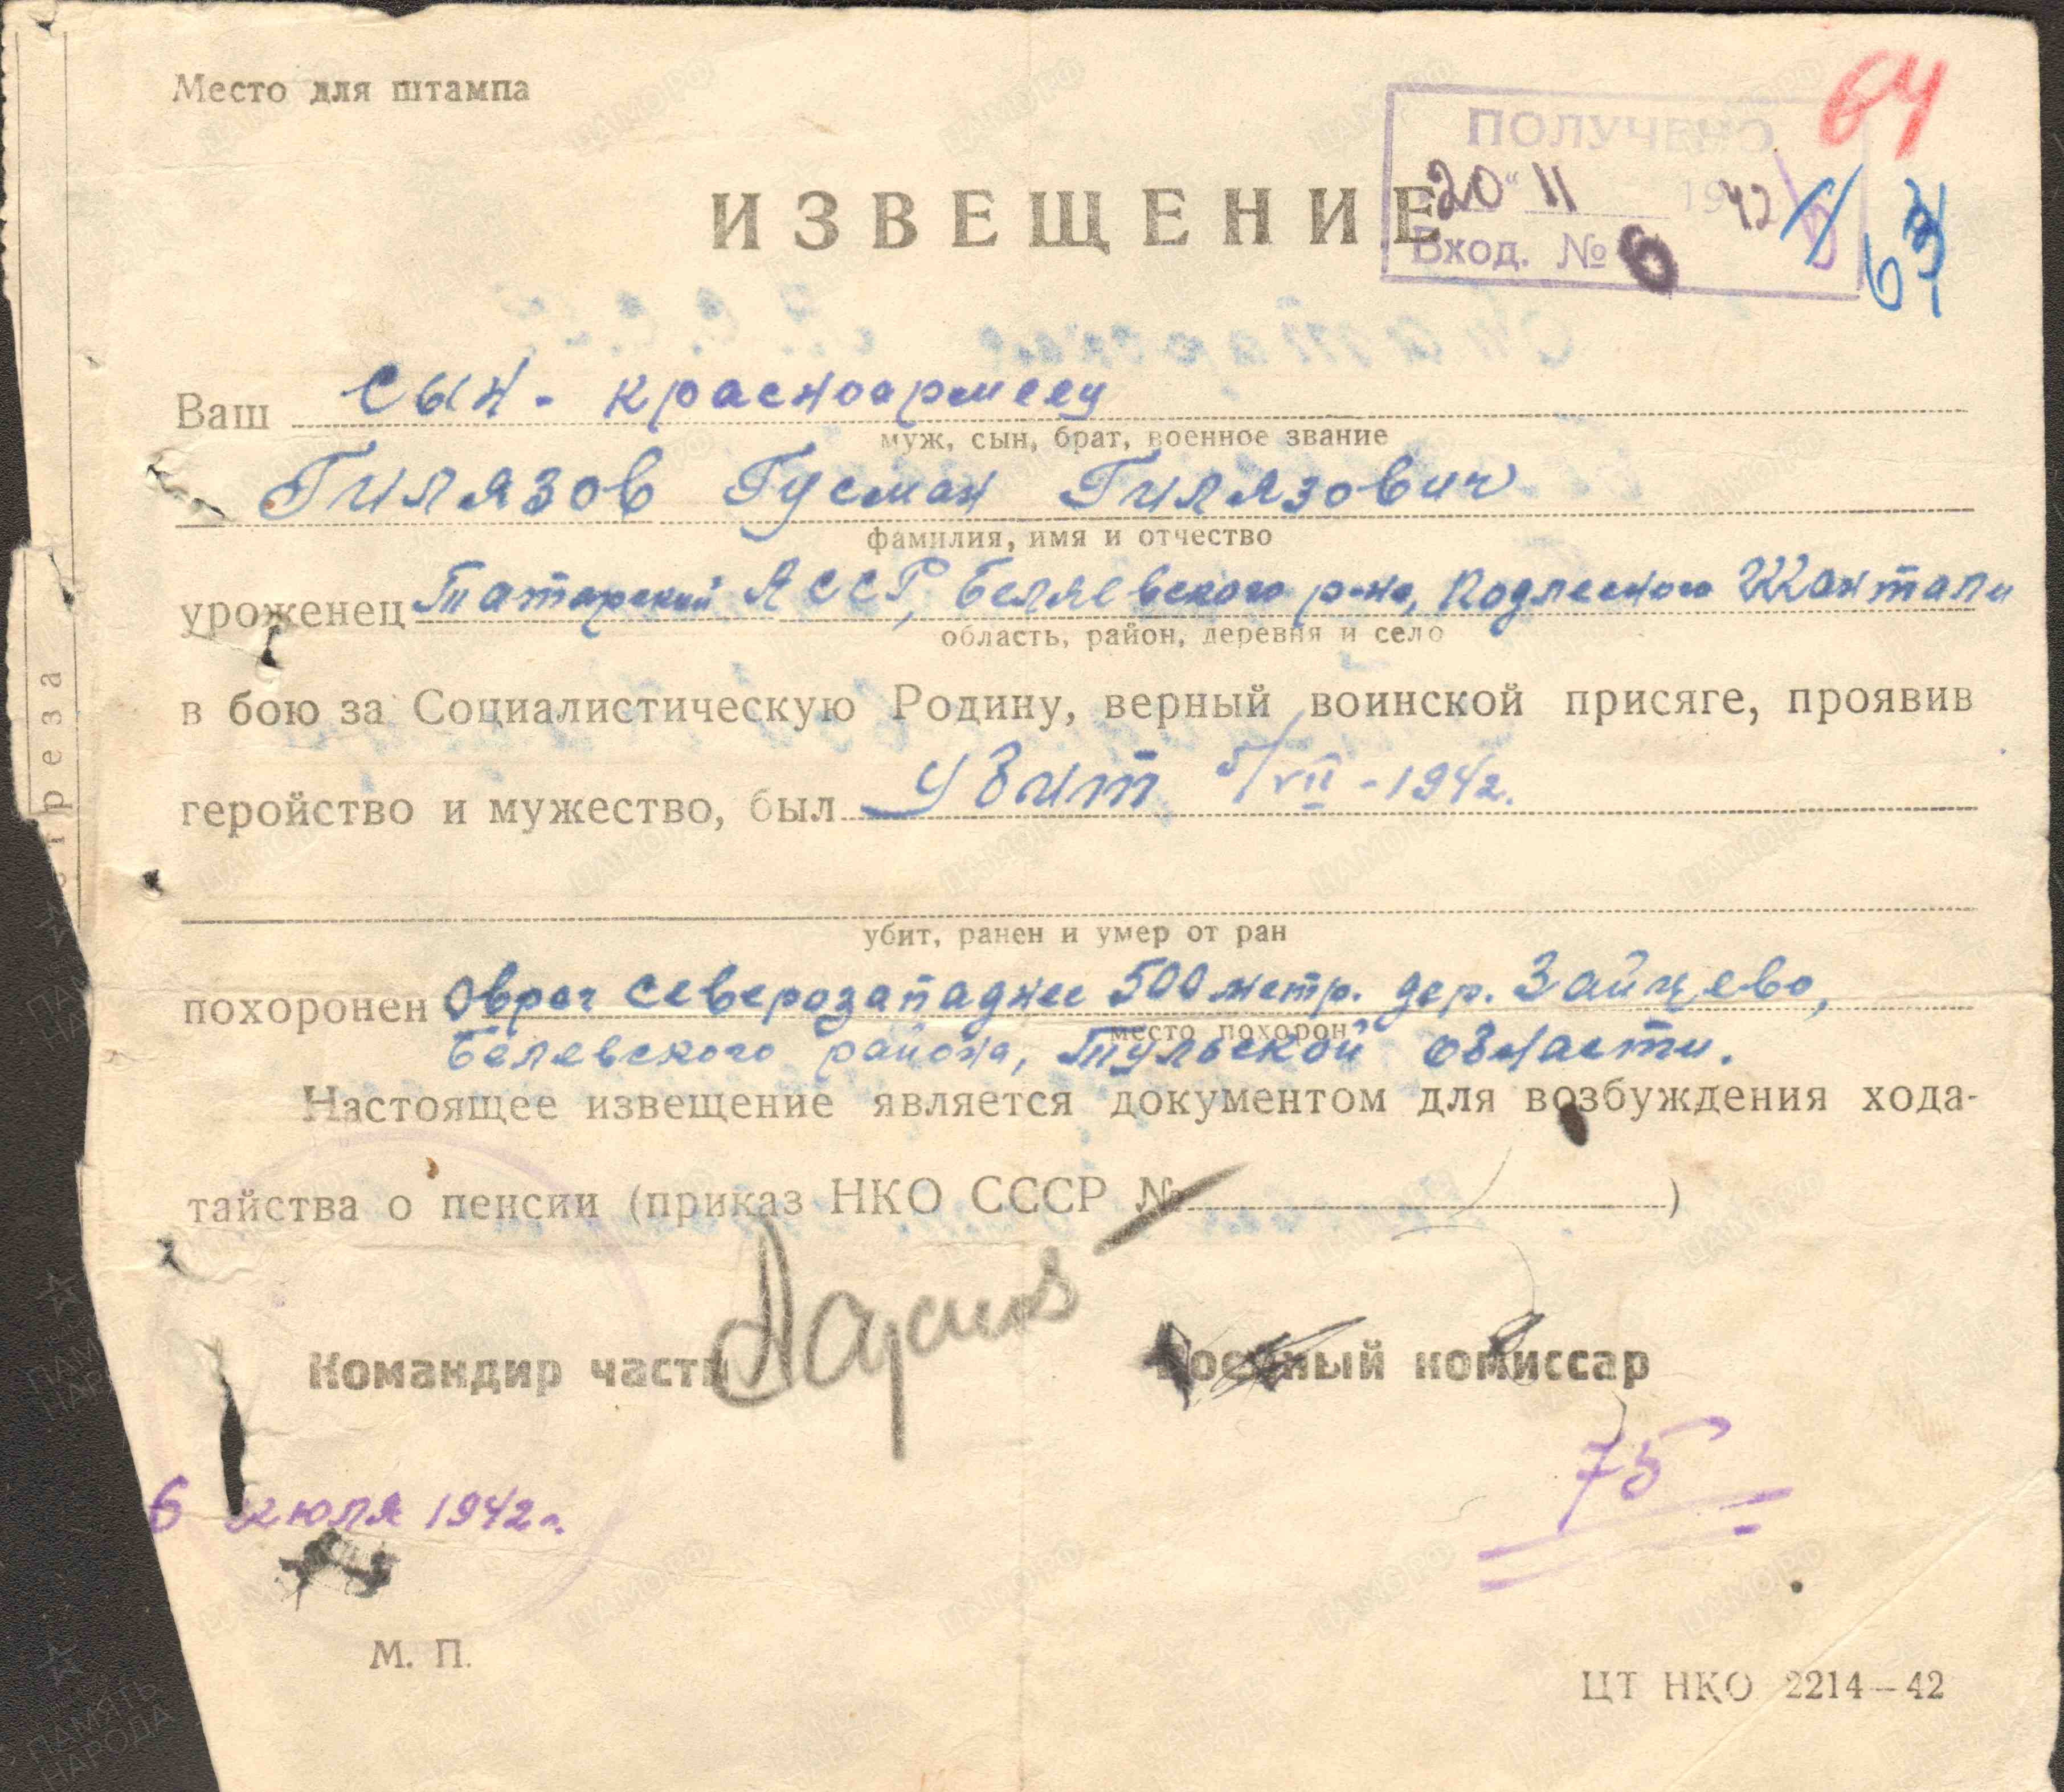 Место для штампа
64
ПОЛУЧЕНО
20 " 11 1942
Вход. № 6
63
ИЗВЕЩЕНИЕ
Ваш сын - красноармеец
муж, сын, брат, военное звание
Гилязов Гусман Гилязович
фамилия, имя и отчество
уроженец Татарской АССР, Беляевского р-на, Подлесного Шантали
область, район, деревня и село
в бою за Социалистическую Родину, верный воинской присяге, проявив
геройство и мужество, был убит 5/VII - 1942.
убит, ранен и умер от ран
похоронен Овраг северозападнее 500 метр. дер. Зайцево,
место похорон
Белевского района, Тульской области.
Настоящее извещение является документом для возбуждения хода-
тайства о пенсии (приказ НКО СССР № )
Командир части Военный комиссар
75
6 июля 1942г.
М. П.
ЦТ НКО 2214—42
реза
ЦАМО.РФ
ПАМЯТЬ НАРОДА